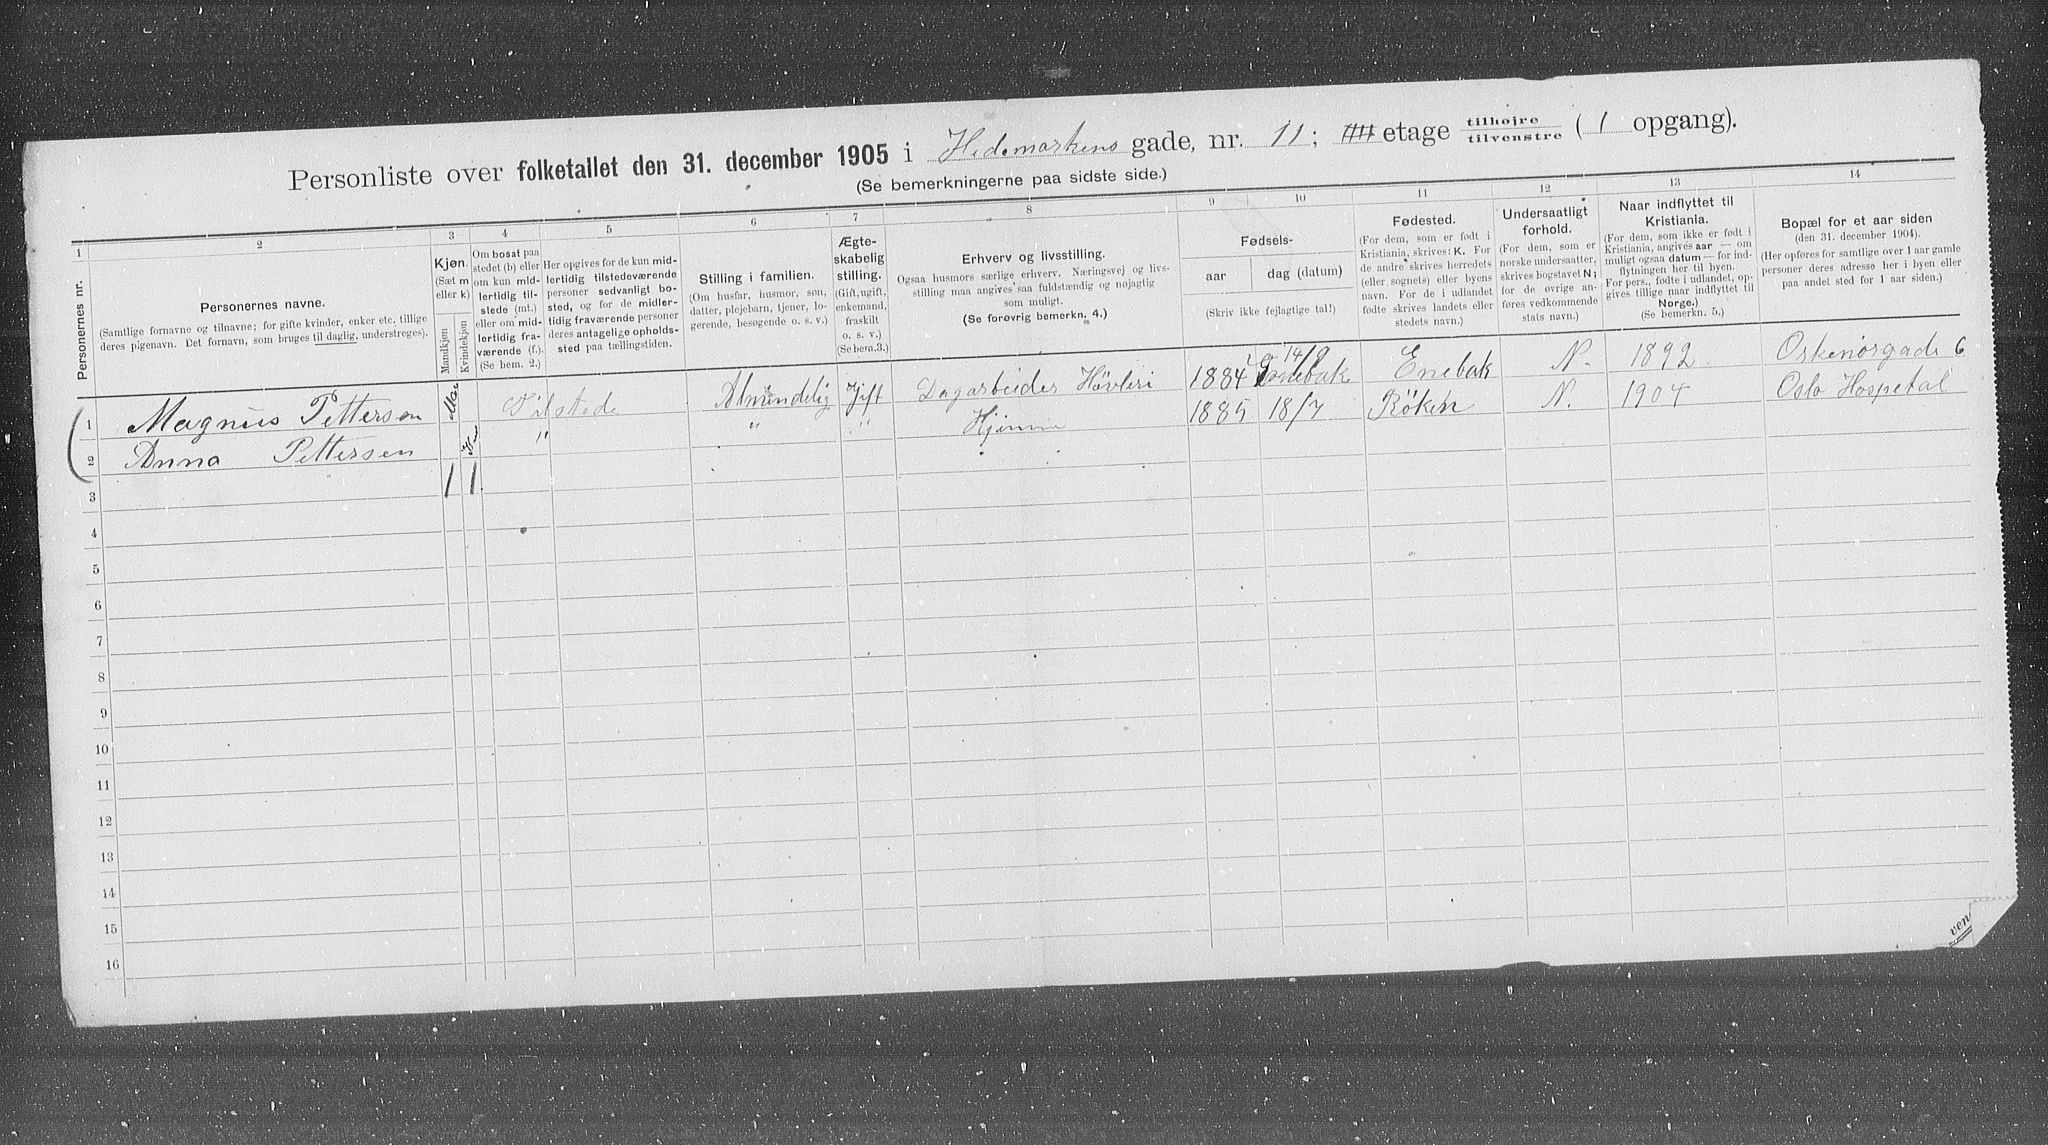 Personliste over folketallet den 31. december 1905 i Hedemarkens gade, nr. 11; etage tilhøjre tilvenstre ( 1 opgang).
(Se bemerkningerne paa sidste side.)
1 2 3 4 5 6 7 8 9 10 11 12 13 14
Personernes nr.
Personernes navne.
(Samtlige fornavne og tilnavne; for gifte kvinder, enker etc. tillige
deres pigenavn. Det fornavn, som bruges til daglig, understreges).
Kjøn.
(Sæt m
eller k)
Mandkjøn
Kvindekjøn
Om bosat paa
stedet (b) eller
om kun mid-
lertidig til-
stede (mt.)
eller om mid-
lertidig fra-
værende (f.).
(Se bem. 2.)
Her opgives for de kun mid-
lertidig tilstedeværende
personer sedvanlig bo-
sted, og for de midler-
tidig fraværende personer
deres antagelige opholds-
sted paa tællingstiden.
Stilling i familien.
(Om husfar, husmor, søn,
datter, plejebarn, tjener, lo-
gerende, besøgende o. s. v.)
Ægte-
skabelig
stilling.
(Gift, ugift,
enkemand,
fraskilt
o. s. v.)
(Se bem.3.)
Erhverv og livsstilling.
Ogsaa husmors særlige erhverv. Næringsvej og livs-
stilling maa angives saa fuldstændig og nøjagtig
som muligt.
(Se forøvrig bemerkn. 4.)
Fødsels-
aar
dag (datum)
(Skriv ikke fejlagtige tal!)
Fødested.
(For dem, som er født i
Kristiania, skrives: K. For
de andre skrives herredets
(eller sognets) eller byens
navn. For de i udlandet
fødte skrives landets eller
stedets navn.)
Undersaatligt
forhold.
(For dem, som er
norske undersaatter,
skrives bogstavet N;
for de øvrige an-
føres vedkommende
stats navn.)
Naar indflyttet til
Kristiania.
(For dem, som ikke er født i
Kristiania, angives aar — om
muligt ogsaa datum — for ind-
flytningen her til byen.
For pers., fødte i udlandet, op-
gives tillige naar indflyttet til
Norge.)
(Se bemerkn. 5.)
Bopæl for et aar siden
(den 31. december 1904).
(Her opføres for samtlige over 1 aar gamle
personer deres adresse her i byen eller
paa andet sted for 1 aar siden.)
1 Magnus Pettersen Tilstede Almindelig Gift Dagarbeider Høvleri 1884 14/9 Enebak N. 1892 Oskenørgade 6
2 Anna Pettersen " " " Hjemme 1885 18/7 Røken N. 1904 Oslo Hospetal
3 1 1
4
5
6
7
8
9
10
11
12
13
14
15
16
ven